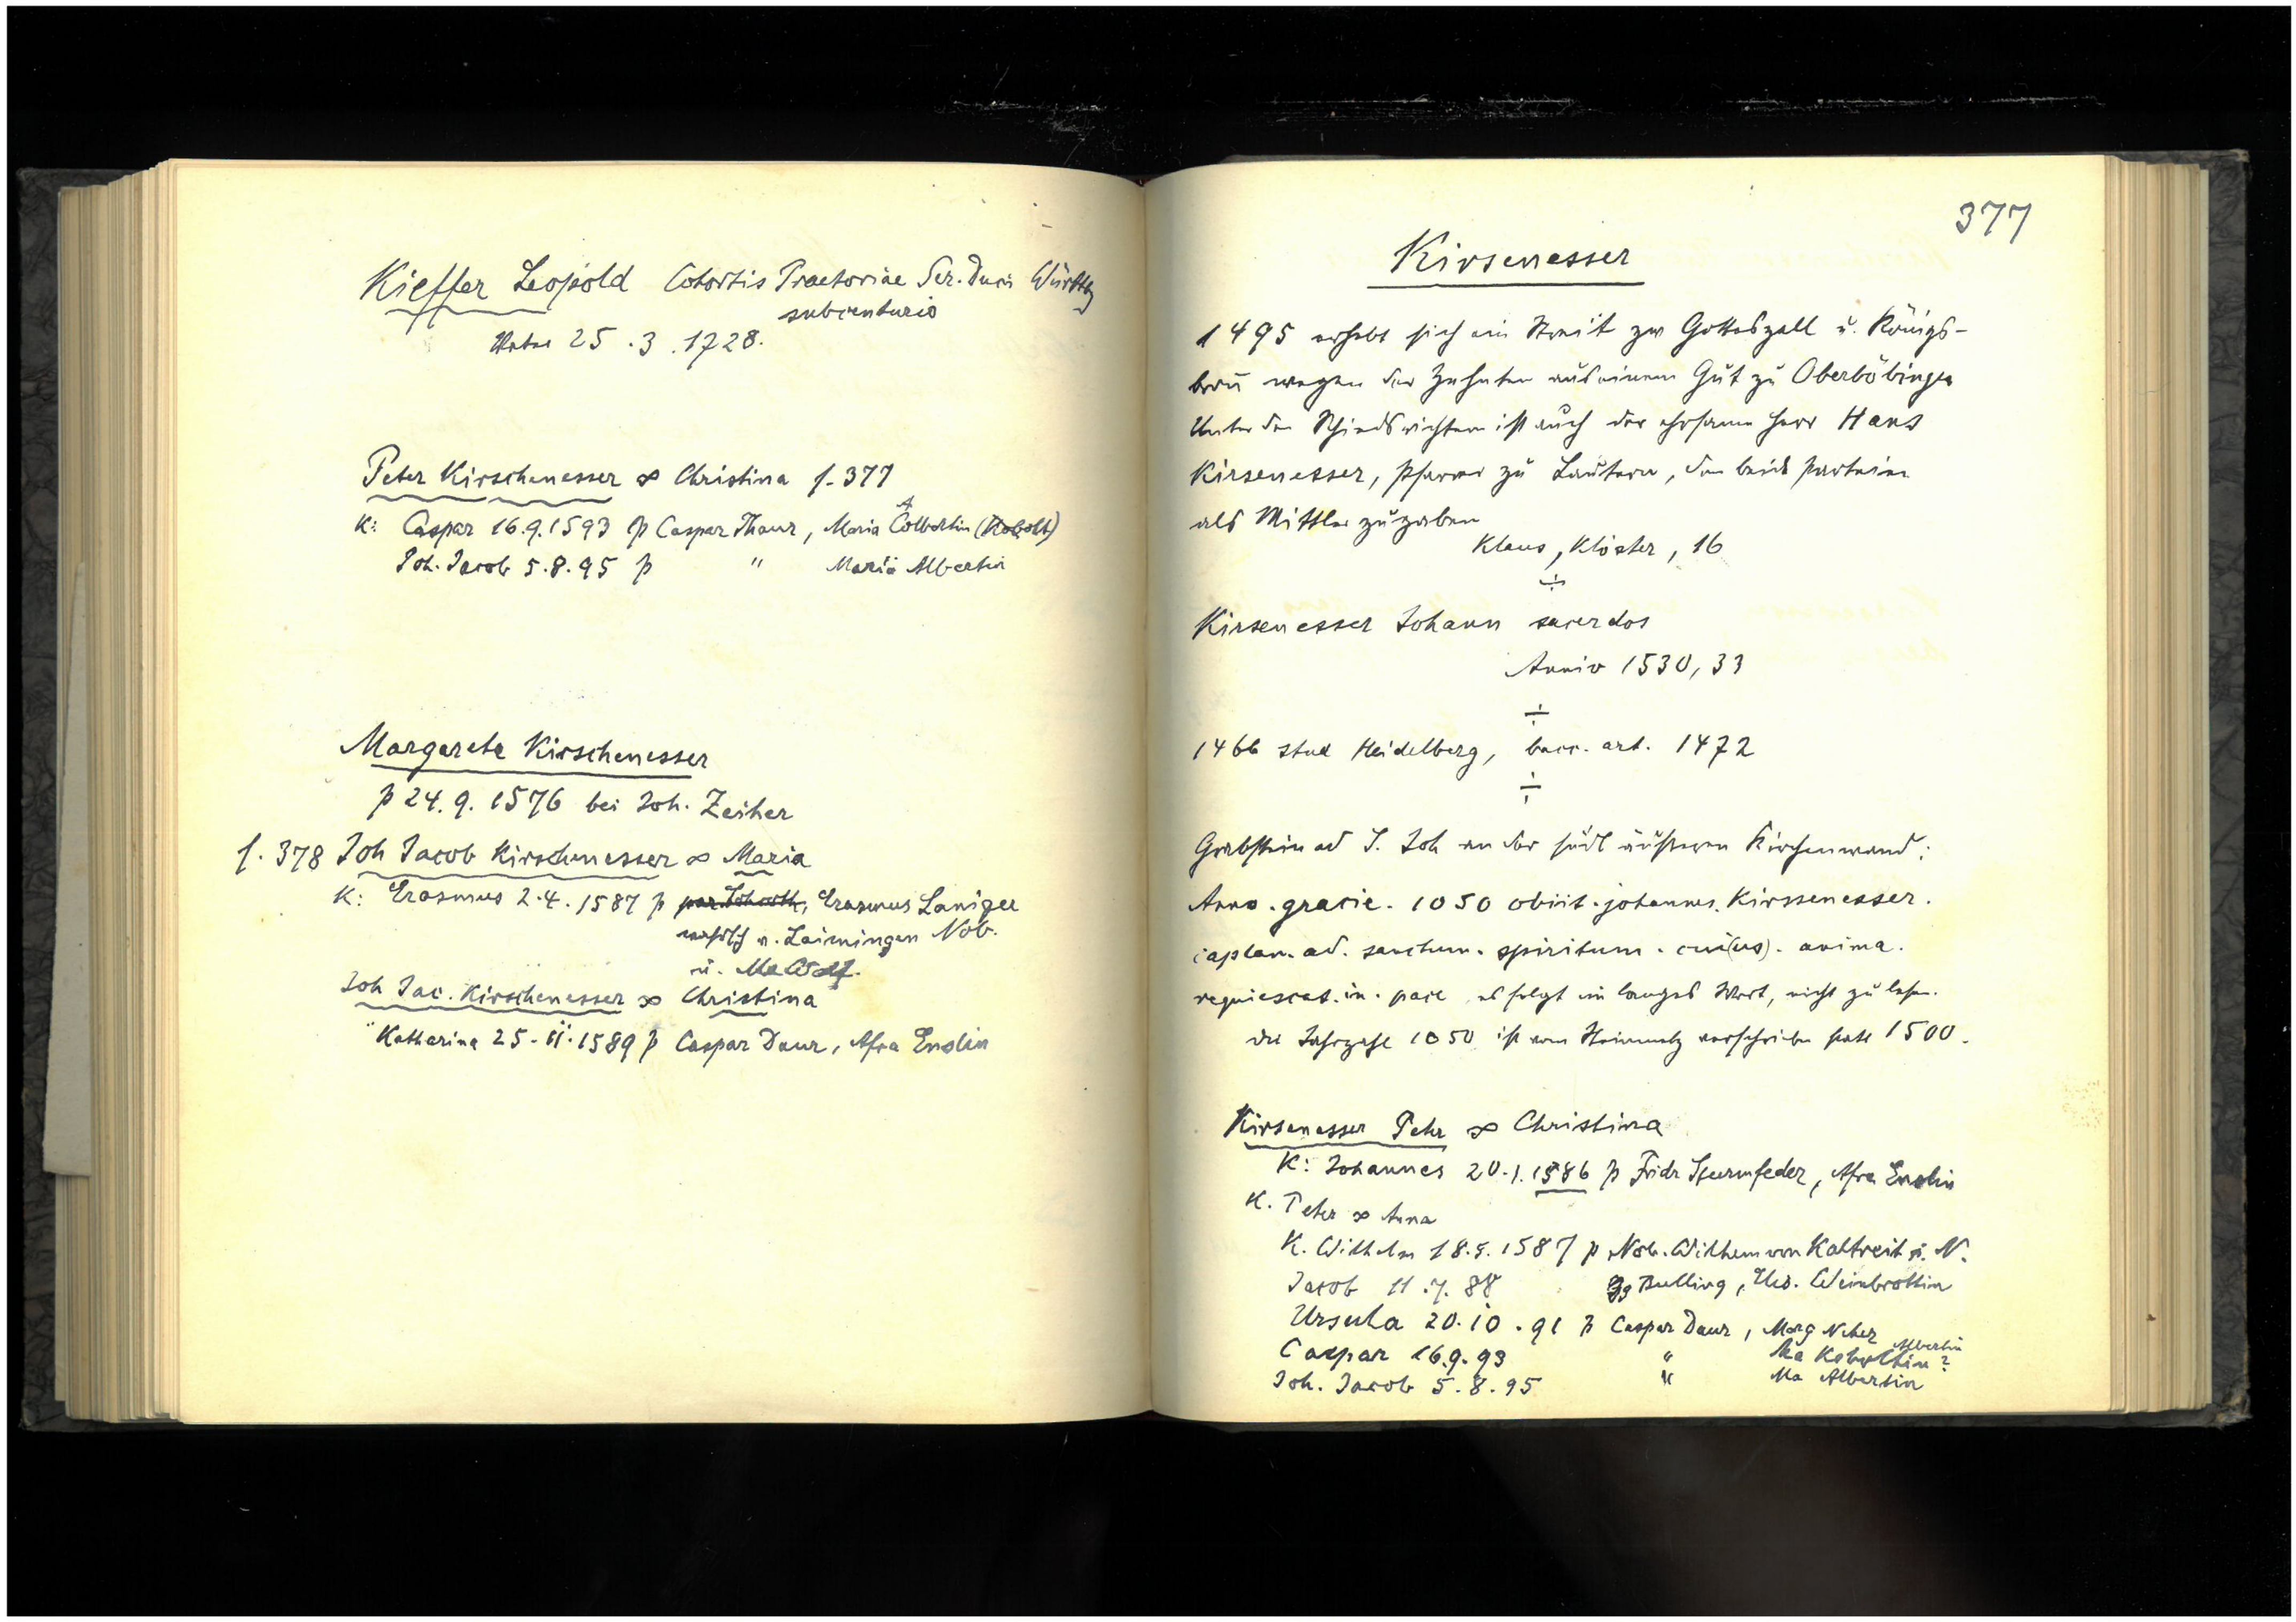 Kieffer Leopold Cohortis Praetoriae Ser. Ducis Württbg
subcenturio
25.3.1728.
Peter Kirschenesser ∞ Christina f. 377
K: Caspar 16.9.1593 p Caspar Thaur, Maria Colbertin (Kobolt)
A
Joh. Jacob 5.8.95 p " Maria Albertin
Margareta Kirschenesser
p 24.9.1576 bei Joh. Zeiher
f. 378 Joh Jacob Kirschenesser ∞ Maria
K: Erasmus 2.4.1587 p Erasmus
v. Laimingen Nob.
u. Ma
Joh Jac. Kirschenesser ∞ Christina
Katharina 25.11.1589 p Caspar Daur, Afra Enslin
377
Kirsenesser
1495 erhebt sich ein Streit zw Gotteszell u. Königs-
bron wegen der Zehnten aus einem Gut zu Oberböbingen
Unter den Schiedsrichtern ist auch der ehrsame Herr Hans
Kirsenesser, Pfarrer zu Lautern, den beide Parteien
als Mittler zugaben
Klaus, Klöster, 16
÷
Kirsenesser Johann sacerdos
Anniv 1530, 33
÷
1466 stud Heidelberg, bacc. art. 1472
÷
Grabstein ad S. Joh an der südl äusseren Kirchenwand:
Anno. gracie. 1050 obiit. johannes. Kirssenesser.
caplan. ad. sanctum. spiritum. cui(us). anima.
requiescat. in. pace es folgt ein langes Wort, nicht zu lesen.
die Jahrzahl 1050 ist vom Steinmetz verschrieben statt 1500.
Kirsenesser Peter ∞ Christina
K: Johannes 20.1.1586 p Fridr Sturmfeder, Afra Enslin
K. Peter ∞ Anna
K. Wilhelm 18.5.1587 p Nob. Wilhem von Kaltreit u. N.
Jacob 11.7.88 Gg Bulling, Urs. Weinbrottin
Ursula 20.10.91 p Caspar Daur, Marg Neher
Albertin
Caspar 16.9.93 " Ma Koboltin?
Joh. Jacob 5.8.95 " Ma Albertin